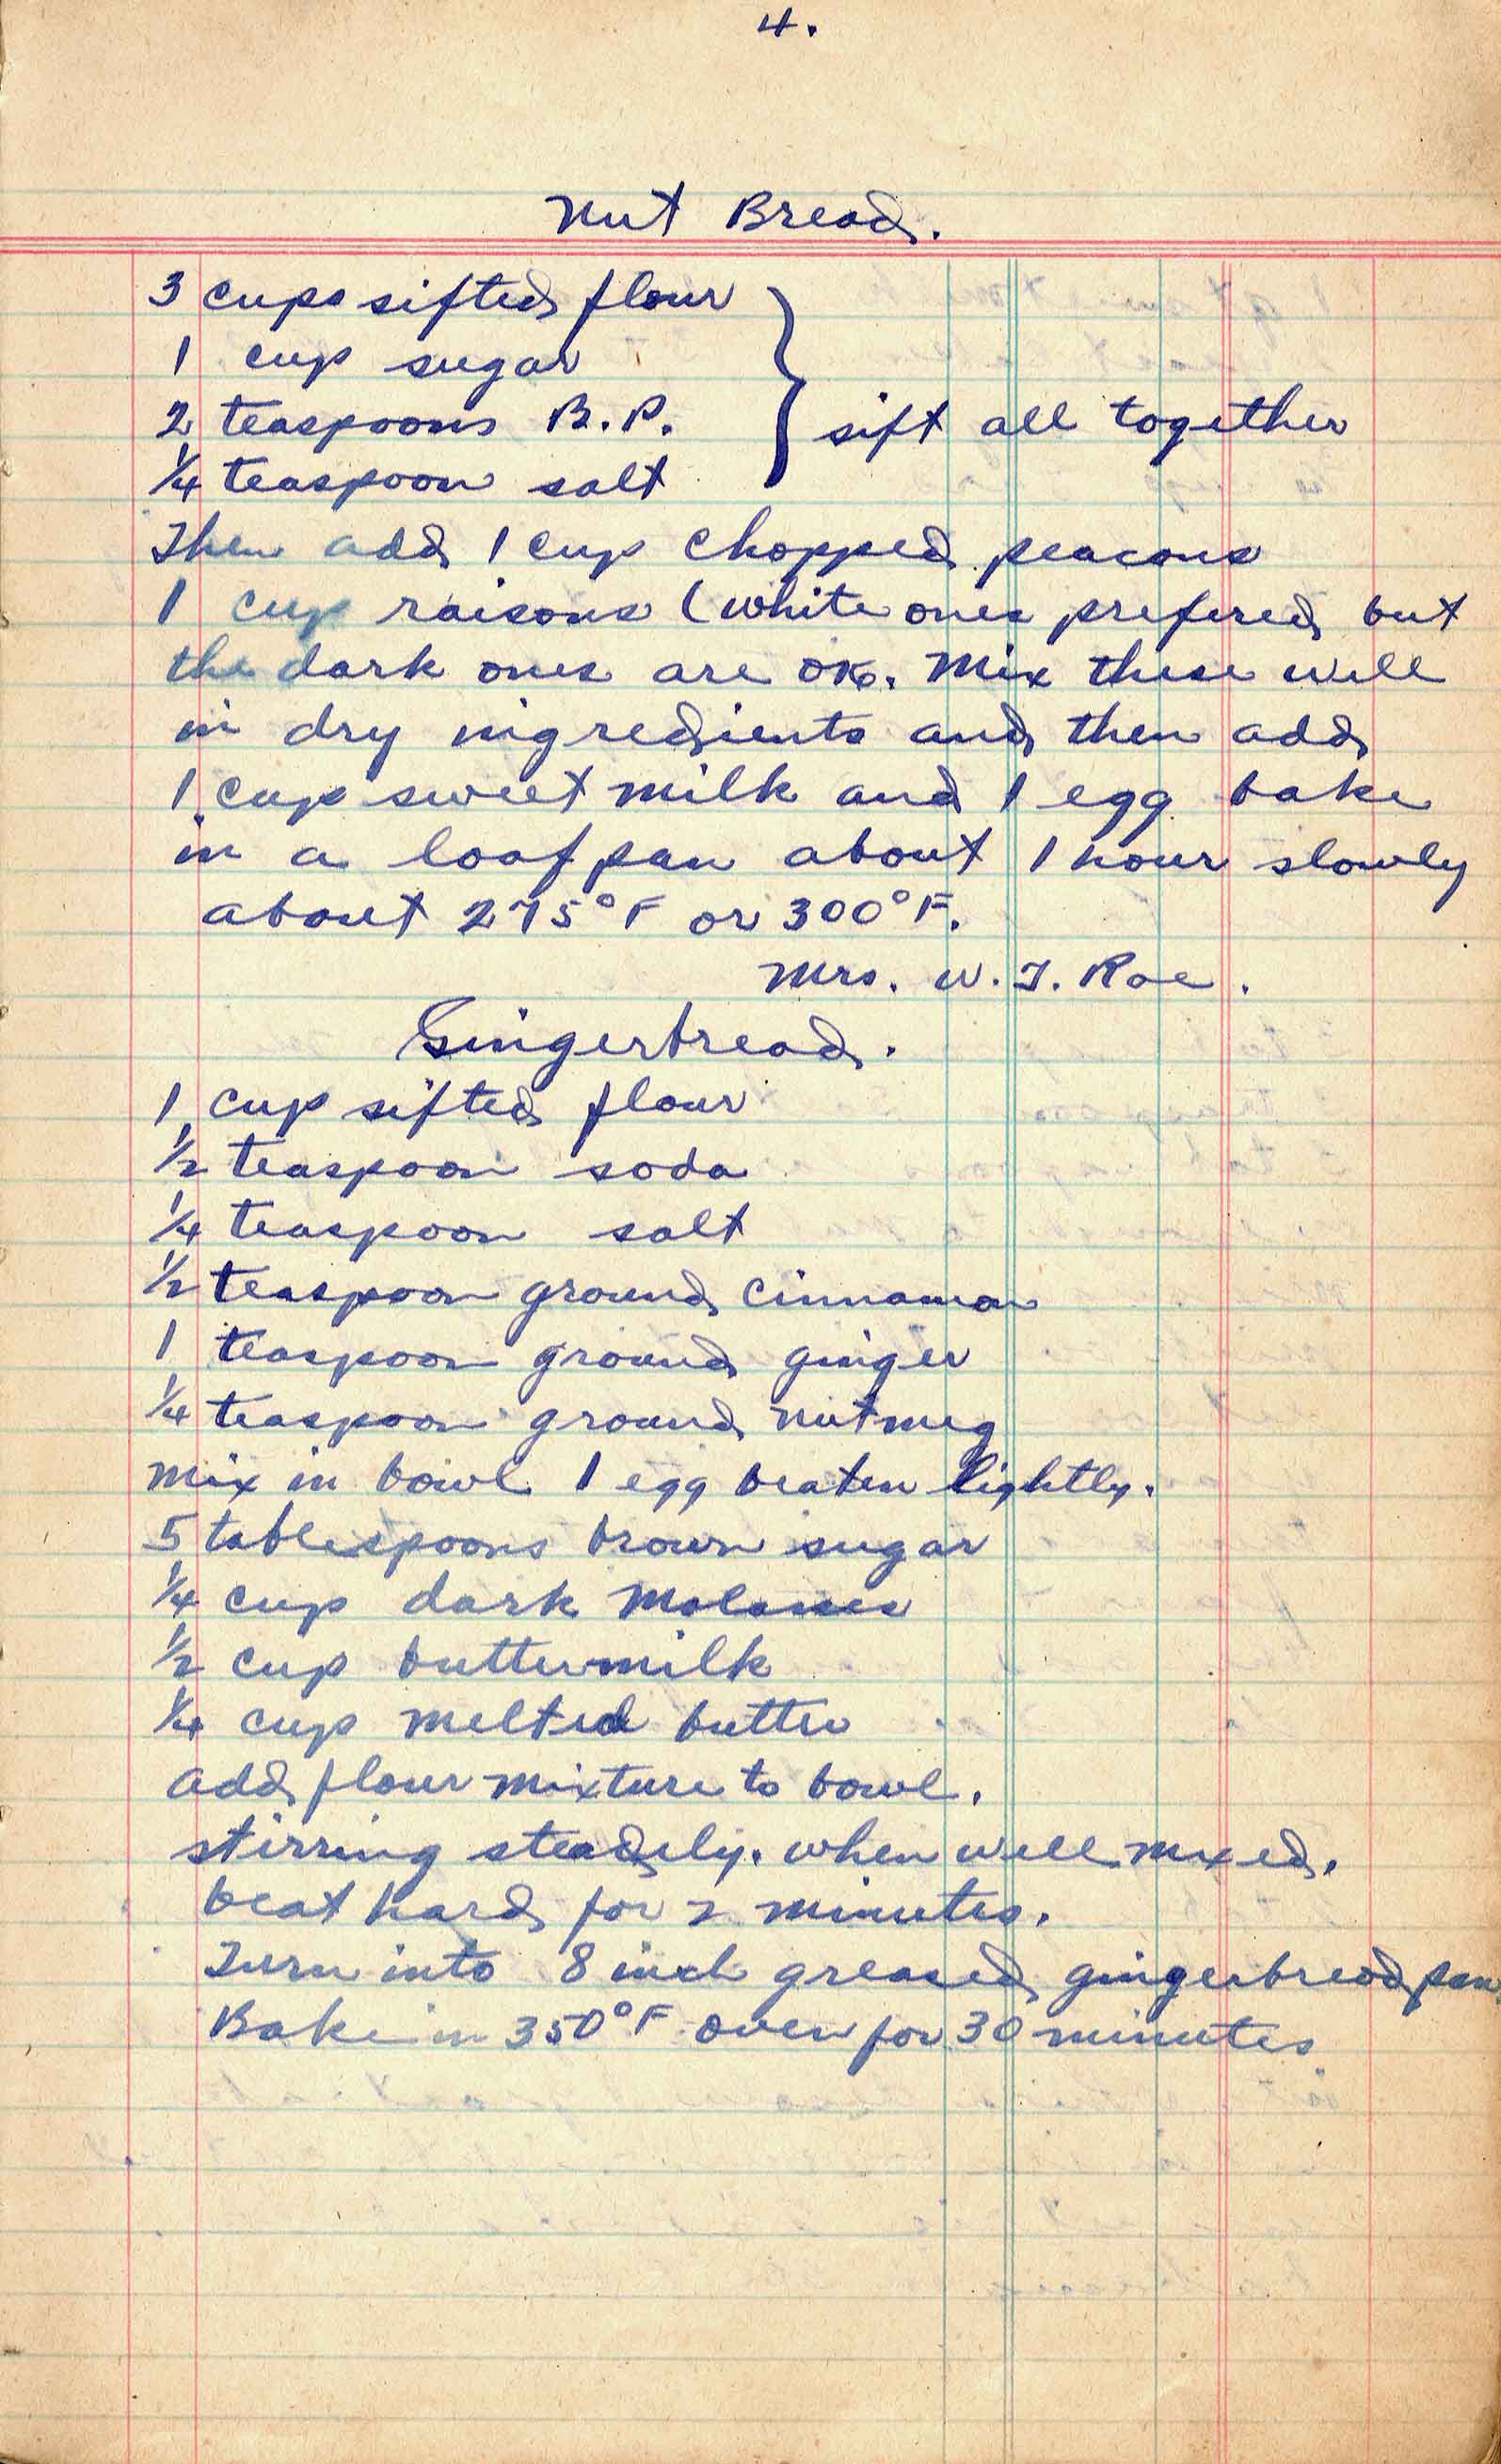 4.
Nut Bread.
3 cups sifted flour
1 cup sugar
2 teaspoons B.P. } sift all together
1/4 teaspoon salt
Then add 1 cup chopped peacans
1 cup raisons (white ones prefered but
the dark ones are OK. Mix these well
in dry ingredients and then add
1 cup sweet milk and 1 egg bake
in a loaf pan about 1 hour slowly
about 275°F or 300°F.
Mrs. W. T. Roe.
Gingerbread.
1 cup sifted flour
1/2 teaspoon soda
1/4 teaspoon salt
1/2 teaspoon ground cinnamon
1 teaspoon ground ginger
1/4 teaspoon ground nutmeg
mix in bowl 1 egg beaten lightly.
5 tablespoons brown sugar
1/4 cup dark Molasses
1/2 cup buttermilk
1/4 cup melted butter
add flour mixture to bowl.
stirring steadily. when well mixed.
beat hard for 2 minutes.
Turn into 8 inch greased gingerbread pan.
Bake in 350°F oven for 30 minutes